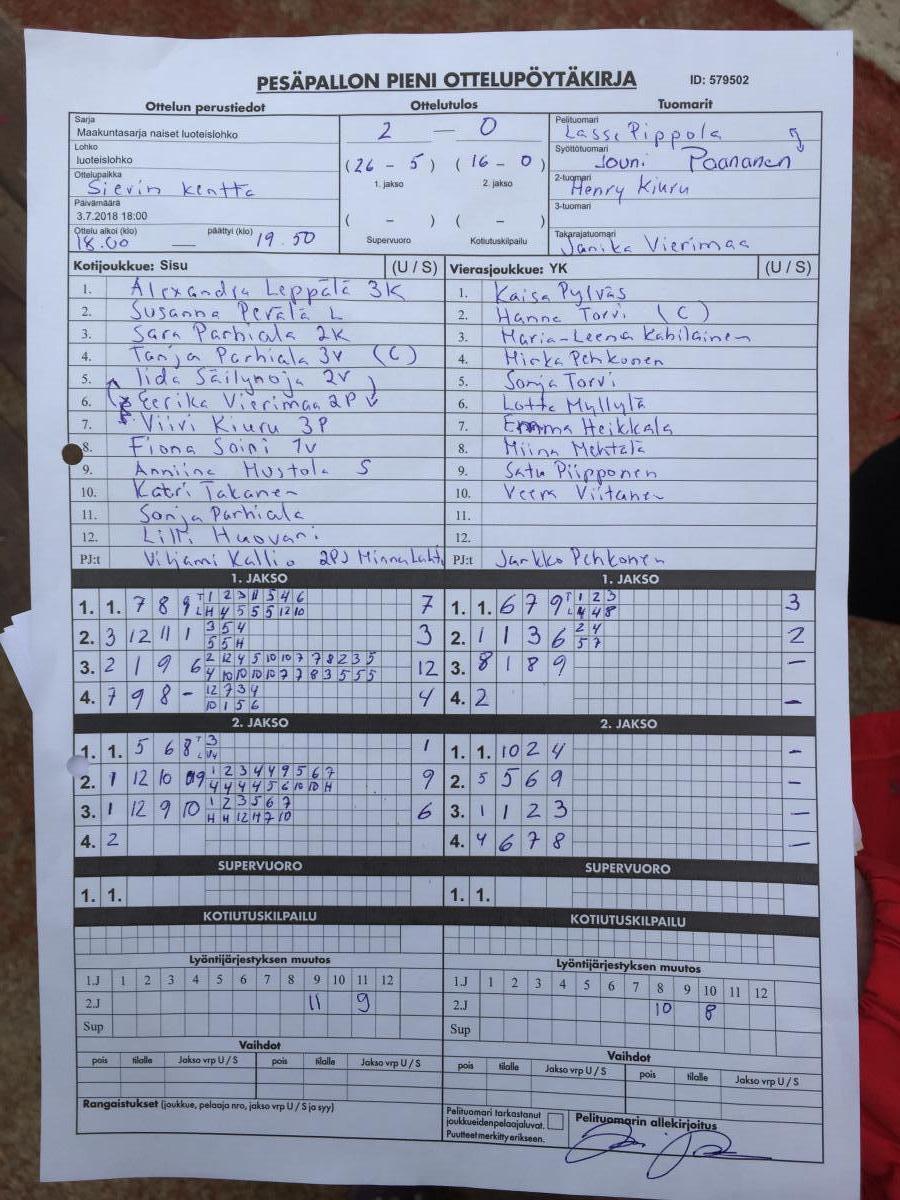 PESÄPALLON PIENI OTTELUPÖYTÄKIRJA ID: 579502
Ottelun perustiedot Ottelutulos Tuomarit
Sarja
Maakuntasarja naiset luoteislohko
Lohko
luoteislohko
Ottelupaikka
Sievin kenttä
Päivämäärä
3.7.2018 18:00
Ottelu alkoi (klo) päättyi (klo)
18.00 — 19.50
2 — 0
(26 - 5) (16 - 0)
1. jakso 2. jakso
( - ) ( - )
Supervuoro Kotiutuskilpailu
Pelituomari
Lasse Pippola
Syöttötuomari
Jouni Paananen
2-tuomari
Henry Kiuru
3-tuomari
Takarajatuomari
Janika Vierimaa
Kotijoukkue: Sisu (U / S)
1. Alexandra Leppälä 3K
2. Susanna Perälä L
3. Sara Parhiala 2K
4. Tanja Parhiala 3v (C)
5. Iida Säilynoja 2v
6. Eerika Vierimaa 2P
7. Viivi Kiuru 3P
8. Fiona Soini 1v
9. Anniina Mustola S
10. Katri Takanen
11. Sonja Parhiala
12. Lilli Huovari
PJ:t Viljami Kallio 2PJ Minna Lahti
Vierasjoukkue: YK (U / S)
1. Kaisa Pylväs
2. Hanna Torvi (C)
3. Maria-Leena Kahilainen
4. Mirka Pehkonen
5. Sonja Torvi
6. Lotta Myllylä
7. Emma Heikkala
8. Miina Mehtälä
9. Satu Piipponen
10. Veera Viitanen
11.
12.
PJ:t Jarkko Pehkonen
1. JAKSO
1. 1. 7 8 9 T 1 2 3 11 5 4 6 7
L H 4 5 5 5 12 10
2. 3 12 11 1 3 5 4 3
5 5 H
3. 2 1 9 6 2 12 4 5 10 10 7 7 8 2 3 5 12
4 10 10 10 10 7 7 8 3 5 5 5
4. 7 9 8 - 12 7 3 4 4
10 1 5 6
1. JAKSO
1. 1. 6 7 9 T 1 2 3 3
L 4 4 8
2. 1 1 3 6 2 4 2
5 7
3. 8 1 8 9 –
4. 2 –
2. JAKSO
1. 1. 5 6 8 T 3 1
2. 1 12 10 9 1 2 3 4 4 9 5 6 7 9
4 4 4 4 5 6 10 10 H
3. 1 12 9 10 1 2 3 5 6 7 6
H H 12 H 7 10
4. 2
2. JAKSO
1. 1. 10 2 4 –
2. 5 5 6 9 –
3. 1 1 2 3 –
4. 4 6 7 8 –
SUPERVUORO
1. 1.
SUPERVUORO
1. 1.
KOTIUTUSKILPAILU
KOTIUTUSKILPAILU
Lyöntijärjestyksen muutos
1.J 1 2 3 4 5 6 7 8 9 10 11 12
2.J 11 9
Sup
Lyöntijärjestyksen muutos
1.J 1 2 3 4 5 6 7 8 9 10 11 12
2.J 10 8
Sup
Vaihdot
pois tilalle Jakso vrp U / S pois tilalle Jakso vrp U / S
Vaihdot
pois tilalle Jakso vrp U / S pois tilalle Jakso vrp U / S
Rangaistukset (joukkue, pelaaja nro, jakso vrp U / S ja syy)
Pelituomari tarkastanut
joukkueidenpelaajaluvat.
Puutteet merkitty erikseen.
Pelituomarin allekirjoitus